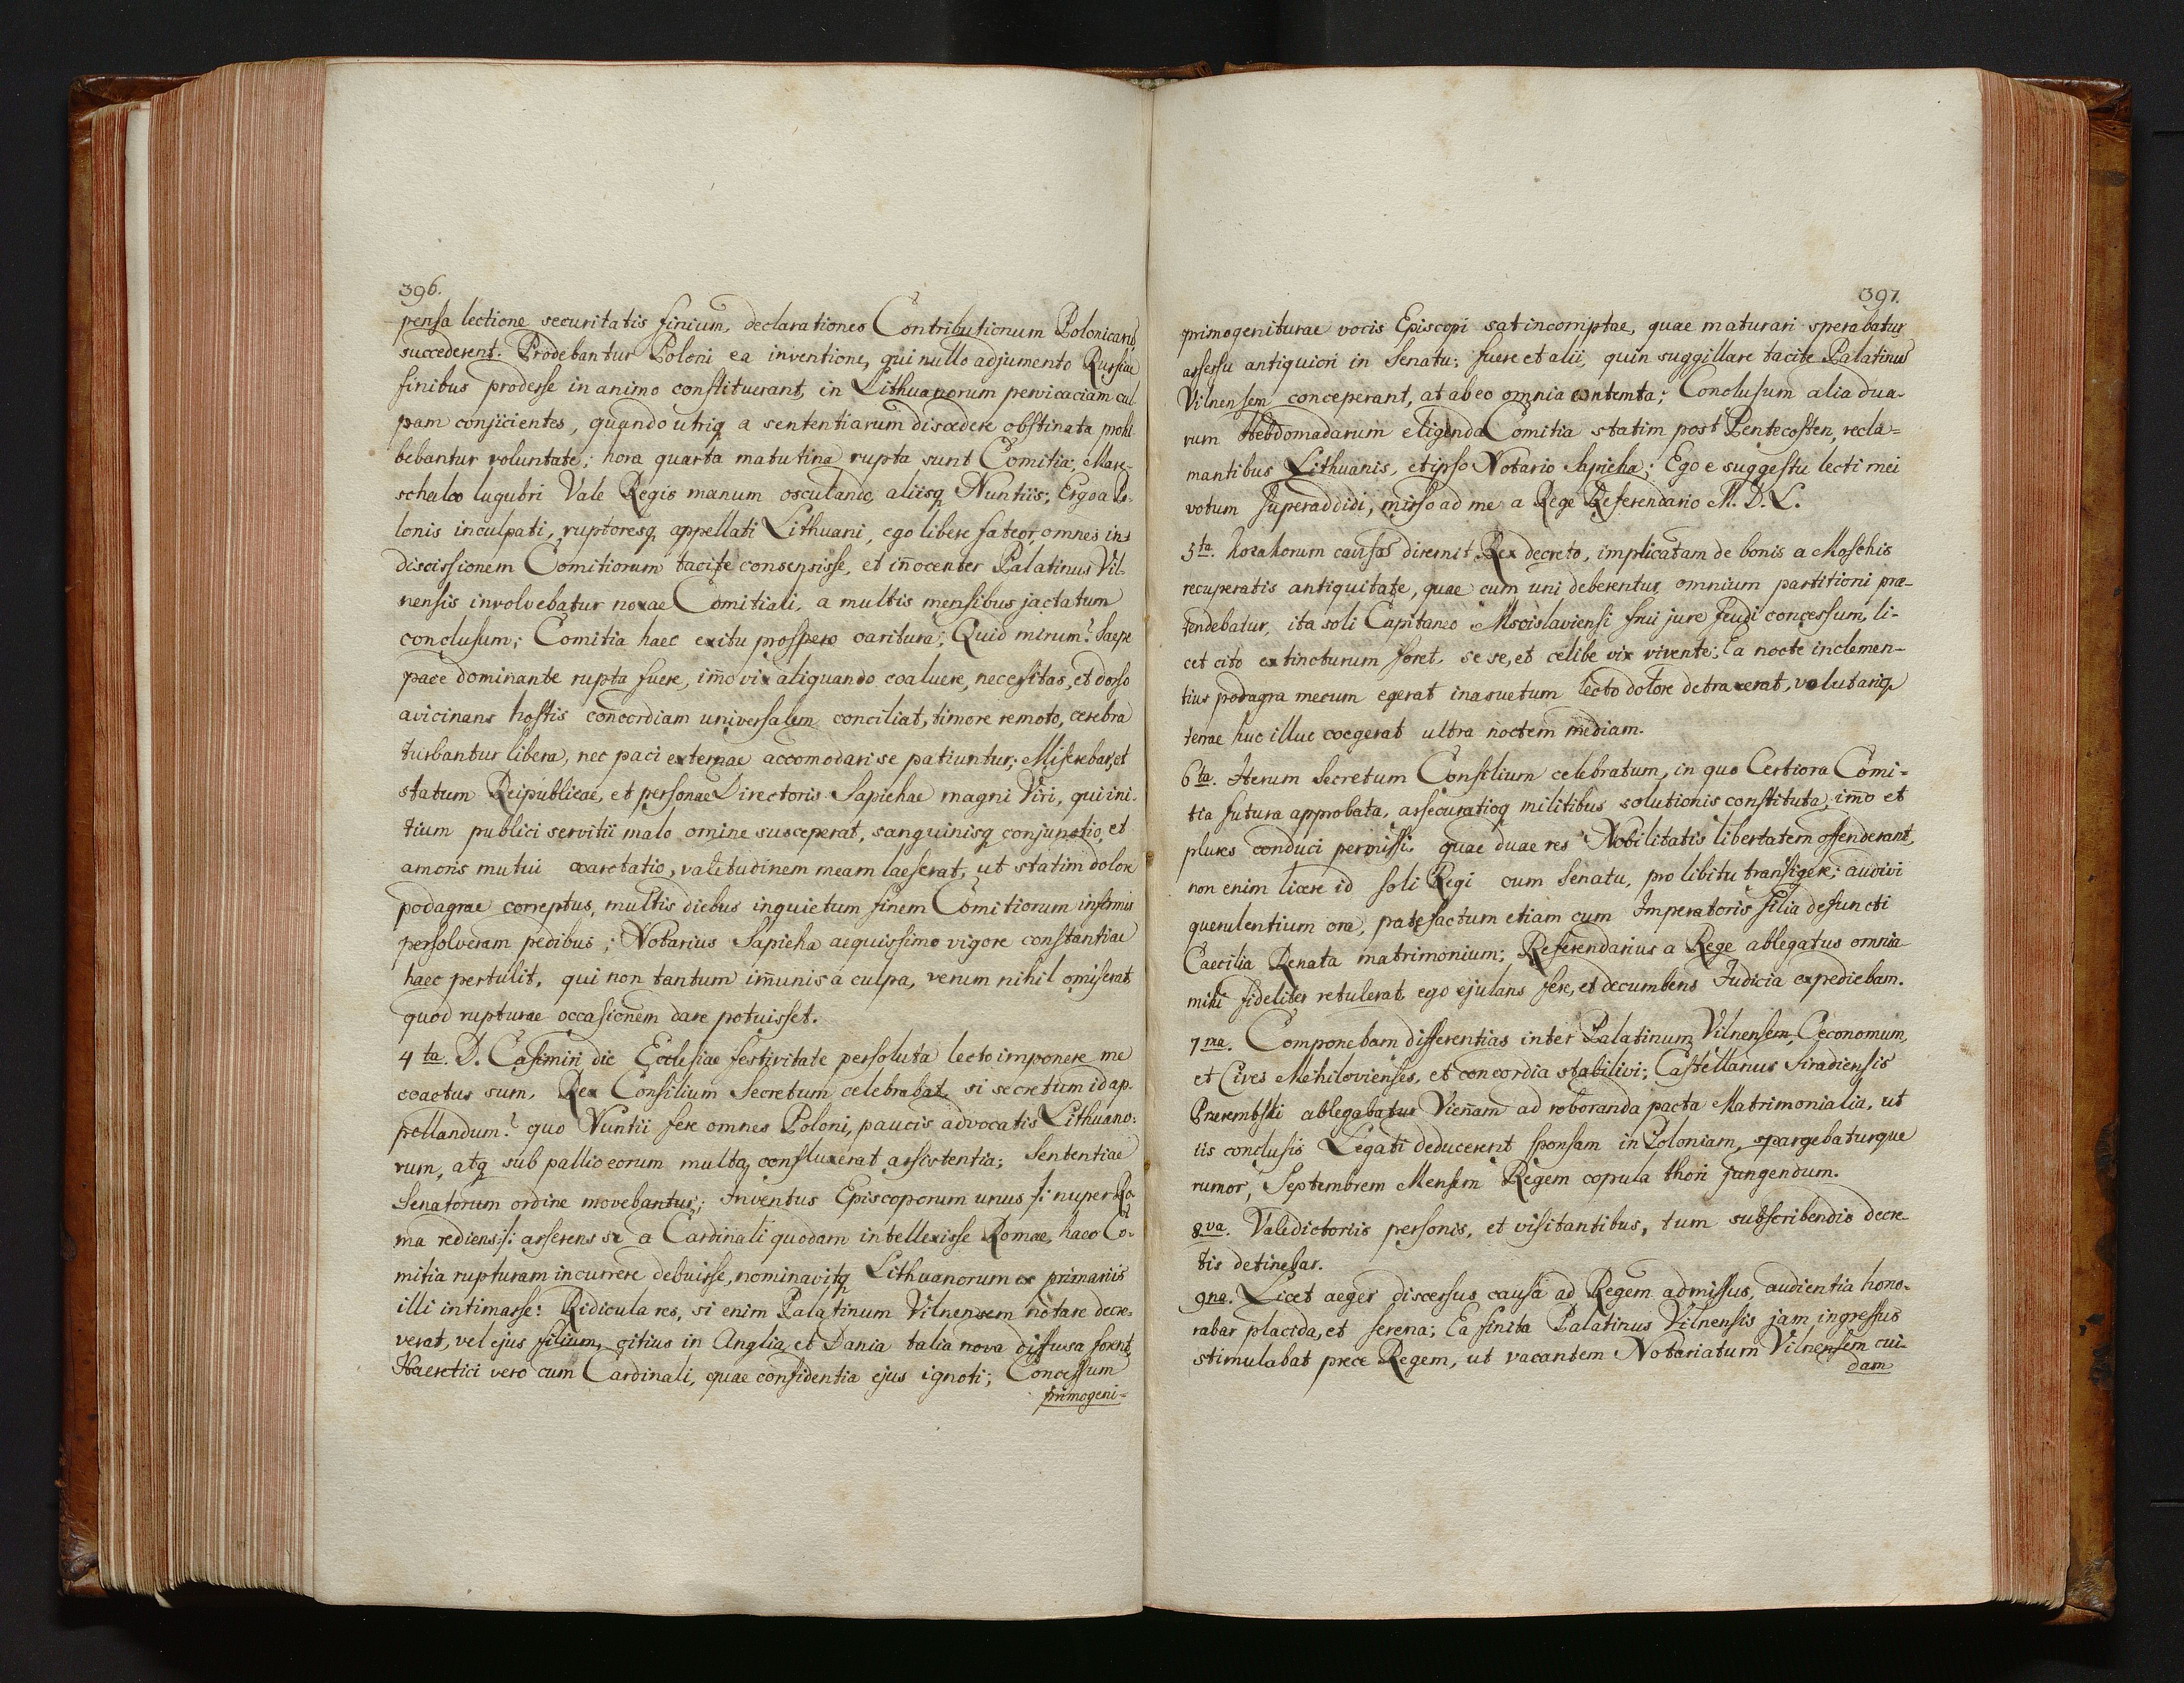 396.
pensa lectione securitatis finium, declarationes Contributionum Polonicarū
succederent. Prodebantur Poloni ea inventione, qui nullo adjumento Russiae
finibus prodesse in animo constituerant, in Lithuanorum pervicaciam cul
pam conjicientes, quando utriq a sententiarum discedere obstinata prohi
bebantur voluntate; hora quarta matutina rupta sunt Comitia; Mare-
schalco lugubri Vale Regis manum osculando, aliisq Nuntiis; Ergo a Po-
lonis inculpati, ruptoresq appellati Lithuani, ego libere fateor, omnes in
discissionem Comitiorum tacite consensisse, et iñocenter Palatinus Vil-
nensis involvebatur noxae Comitiali, a multis mensibus jactatum
conclusum; Comitia haec exitu prospero caritura; Quid mirum? Saepe
pace dominante rupta fuere, im̄o vix aliquando coaluere, necessitas, et dorso
avicinans hostis concordiam universalem conciliat, timore remoto, cerebra
turbantur libera, nec paci externae accomodari se patiuntur; Miserebar, et
statum Reipublicae, et personae Directoris Sapiehae magni Viri, qui ini-
tium publici servitii malo omine susceperat, sanguinisq conjunctio, et
amoris mutui coarctatio, valetudinem meam laeserat, ut statim dolore
podagrae correptus, multis diebus inquietum finem Comitiorum infirmis
persolveram pedibus; Notarius Sapieha aequissimo vigore constantiae
haec pertulit, qui non tantum im̄unis a culpa, verum nihil omiserat
quod rupturae occasionem dare potuisset.
4ta. D. Casimiri die Ecclesiae festivitate persoluta lecto imponere me
coactus sum, Rex Consilium Secretum celebrabat, si secretum id ap-
pellandum? quo Nuntii fere omnes Poloni, paucis advocatis Lithuano-
rum, atq sub pallio eorum multa, confluxerat assistentia; Sententiae
Senatorum ordine movebantur; Inventus Episcoporum unus /: nuper Ro
ma rediens :/ asserens se a Cardinali quodam intellexisse Romae, haec Co-
mitia rupturam incurrere debuisse, nominavitq Lithuanorum ex primariis
illi intimasse: Ridicula res, si enim Palatinum Vilnensem notare decre-
verat, vel ejus filium, citius in Anglia, et Dania talia nova diffusa forent,
Haeretici vero cum Cardinali, quae confidentia ejus ignoti; Concessum
primogeni-
397.
primogeniturae vocis Episcopi sat incomptae, quae maturari sperabatur
assessu antiquiori in Senatu; fuere et alii, quin suggillare tacite Palatinū
Vilnensem conceperant, at ab eo omnia contemta; Conclusum alia dua-
rum Hebdomadarum eligenda Comitia statim post Pentecosten, recla-
mantibus Lithuanis, et ipso Notario Sapieha; Ego e suggestu lecti mei
votum superaddidi, misso ad me a Rege Referendario M. D. L.
5ta. hora horum causas diremit Rex decreto, implicatam de bonis a Moschis
recuperatis antiquitate, quae cum uni deberentur, omnium partitioni prae-
tendebatur, ita soli Capitaneo Mscislaviensi frui jure feudi concessum, li-
cet cito extincturum foret, se se, et celibe vix vivente; Ea nocte inclemen-
tius podagra mecum egerat inasuetum lecto dolore detraxerat, volutariq
terrae huc illuc coegerat ultra noctem mediam.
6ta. Iterum Secretum Consilium celebratum, in quo Certiora Comi-
tia futura approbata, assecuratioq militibus solutionis constituta, im̄o et
plures conduci permissi, quae duae res Nobilitatis libertatem offenderant,
non enim licere id soli Regi cum Senatu, pro libitu transigere; audivi
querulentium ora, patefactum etiam cum Imperatoris filia defuncti
Caecilia Renata matrimonium; Referendarius a Rege ablegatus omnia
mihi fideliter retulerat, ego ejulans fere, et decumbens Judicia expediebam.
7ma. Componebam differentias inter Palatinum Vilnensem, Oeconomum,
et Cives Mohilovienses, et concordia stabilivi; Castellanus Siradiensis
Przerembski ablegabatur Vieñam ad roboranda pacta Matrimonialia, ut
iis conclusis Legati deducerent sponsam in Poloniam, spargebaturque
rumor, Septembrem Mensem Regem copula thori jungendum.
8va. Valedictoriis personis, et visitantibus, tum subscribendis decre-
tis detinebar.
9na. Licet aeger discessus causa ad Regem admissus, audientia hono-
rabar placida, et serena; Ea finita Palatinus Vilnensis jam ingressus
stimulabat prece Regem, ut vacantem Notariatum Vilnensem cui-
dam